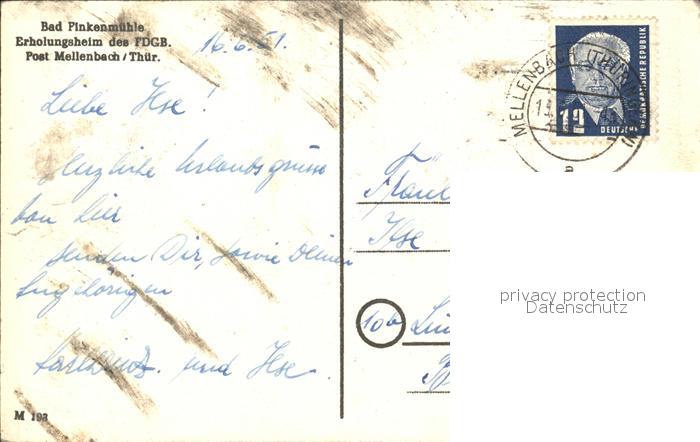 Bad Finkenmühle
Erholungsheim des FDGB.
Post Mellenbach/Thür.
16.6.51.
Liebe Ilse!
Herzliche Urlaubsgrüsse
von hier
senden Dir, sowie Deinen
Angehörigen
und Ilse.
M 193
MELLENBACH (THÜRING
12
DEUTSCHE
DEMOKRATISCHE REPUBLIK
Fräul
Ilse
10b
privacy protection
Datenschutz